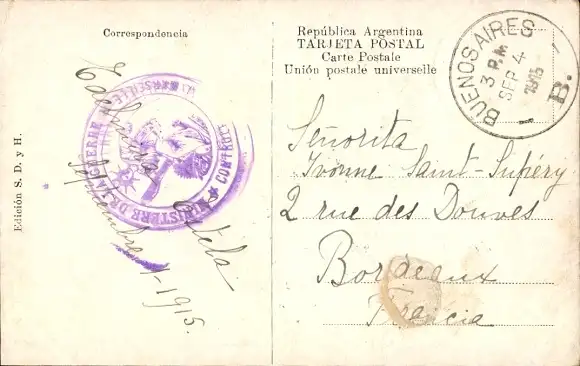 Correspondencia
República Argentina
TARJETA POSTAL
Carte Postale
Unión postale universelle
BUENOS AIRES
3 P.M.
SEP 4
1915
B.
Señorita
Yvonne Saint-Supéry
2 rue des Douves
Bordeaux
Francia
Septiembre 1-1915.
MINISTERE DE LA GUERRE
MARSEILLE
CONTROLE
Edición S. D. y H.